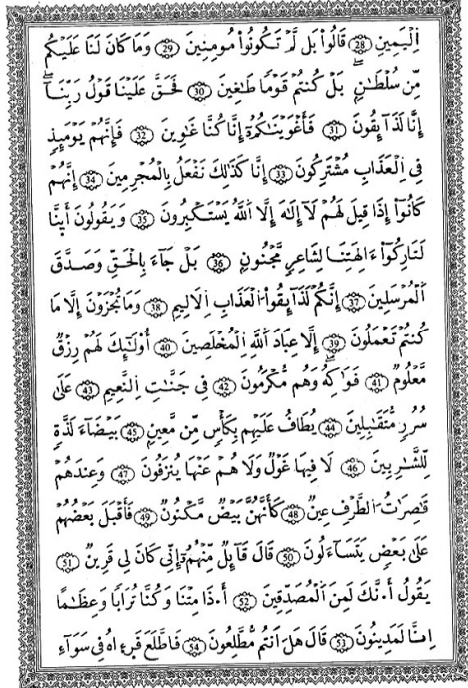 اِ۬ليَمِينِۖ (28) قَالُواْ بَل لَّمْ تَكُونُواْ مُومِنِينَۖ (29) وَمَا كَانَ لَنَا عَلَيْكُم
مِّن سُلْطَٰنِۢۖ بَلْ كُنتُمْ قَوْماٗ طَٰغِينَۖ (30) فَحَقَّ عَلَيْنَا قَوْلُ رَبِّنَآۖ
إِنَّا لَذَآئِقُونَۖ (31) فَأَغْوَيْنَٰكُمُۥٓ إِنَّا كُنَّا غَٰوِينَۖ (32) فَإِنَّهُمْ يَوْمَئِذٖ
فِي اِ۬لْعَذَابِ مُشْتَرِكُونَۖ (33) إِنَّا كَذَٰلِكَ نَفْعَلُ بِالْمُجْرِمِينَۖ (34) إِنَّهُمْ
كَانُوٓاْ إِذَا قِيلَ لَهُمْ لَآ إِلَٰهَ إِلَّا اَ۬للَّهُ يَسْتَكْبِرُونَ (35) وَيَقُولُونَ أَئِنَّا
لَتَارِكُوٓاْ ءَالِهَتِنَا لِشَاعِرٖ مَّجْنُونِۢۖ (36) بَلْ جَآءَ بِالْحَقِّ وَصَدَّقَ
اَ۬لْمُرْسَلِينَۖ (37) إِنَّكُمْ لَذَآئِقُواْ اُ۬لْعَذَابِ اِ۬لَالِيمِۖ (38) وَمَا تُجْزَوْنَ إِلَّا مَا
كُنتُمْ تَعْمَلُونَ (39) إِلَّا عِبَادَ اَ۬للَّهِ اِ۬لْمُخْلَصِينَۖ (40) أُوْلَٰٓئِكَ لَهُمْ رِزْقٞ
مَّعْلُومٞ (41) فَوَٰكِهُۖ وَهُم مُّكْرَمُونَ (42) فِي جَنَّٰتِ اِ۬لنَّعِيمِ (43) عَلَىٰ
سُرُرٖ مُّتَقَٰبِلِينَۖ (44) يُطَافُ عَلَيْهِم بِكَأْسٖ مِّن مَّعِينِۢ (45) بَيْضَآءَ لَذَّةٖ
لِّلشَّٰرِبِينَ (46) لَا فِيهَا غَوْلٞ وَلَا هُمْ عَنْهَا يُنزَفُونَۖ (47) وَعِندَهُمْ
قَٰصِرَٰتُ اُ۬لطَّرْفِ عِينٞ (48) كَأَنَّهُنَّ بَيْضٞ مَّكْنُونٞۖ (49) فَأَقْبَلَ بَعْضُهُمْ
عَلَىٰ بَعْضٖ يَتَسَآءَلُونَۖ (50) قَالَ قَآئِلٞ مِّنْهُمُۥٓ إِنِّي كَانَ لِي قَرِينٞ (51)
يَقُولُ أَ.نَّكَ لَمِنَ اَ۬لْمُصَدِّقِينَ (52) أَ.ذَا مِتْنَا وَكُنَّا تُرَاباٗ وَعِظَٰماً
اِنَّا لَمَدِينُونَۖ (53) قَالَ هَلَ اَنتُم مُّطَّلِعُونَۖ (54) فَاطَّلَعَ فَرَءِاهُ فِي سَوَآءِ